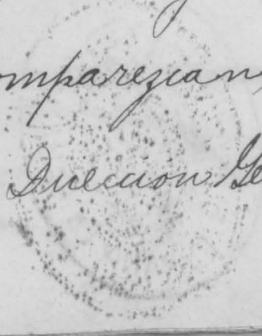 omparezcan
Direccion Ge